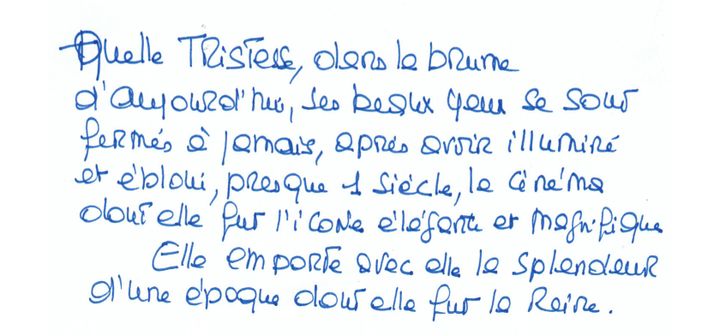 Quelle TRISTESSE, dans la brume
d'aujourd'hui, ses beaux yeux se sont
fermés à jamais, après avoir illuminé
et ébloui, presque 1 siècle, le cinéma
dont elle fut l'icone élégante et magnifique
Elle emporte avec elle la splendeur
d'une époque dont elle fut la Reine.